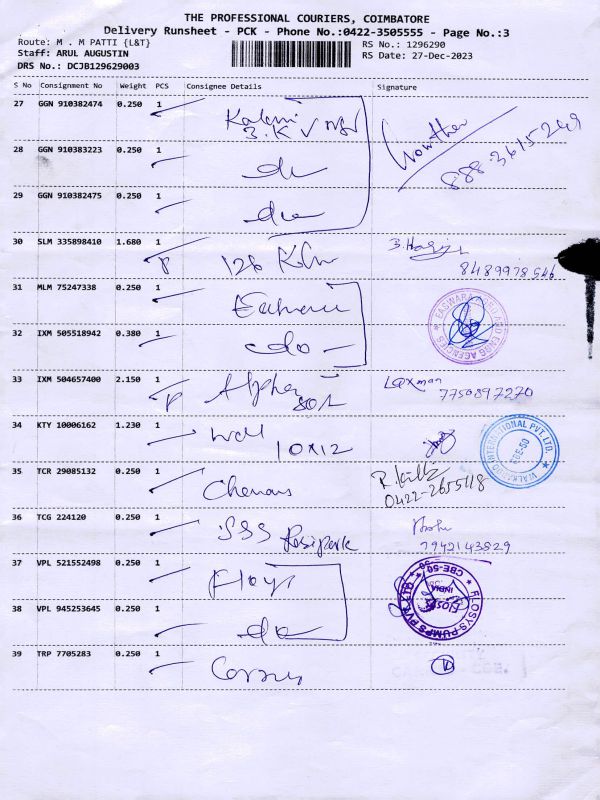 THE PROFESSIONAL COURIERS, COIMBATORE
Delivery Runsheet - PCK - Phone No.:0422-3505555 - Page No.:3
Route: M . M PATTI {L&T}
Staff: ARUL AUGUSTIN
DRS No.: DCJB129629003
RS No.: 1296290
RS Date: 27-Dec-2023
S No Consignment No Weight PCS Consignee Details Signature
27 GGN 910382474 0.250 1
28 GGN 910383223 0.250 1 do
29 GGN 910382475 0.250 1 do
30 SLM 335898410 1.680 1 8489978546
31 MLM 75247338 0.250 1
32 IXM 505518942 0.380 1 do
33 IXM 504657400 2.150 1 Alpha Laxman 7750897270
34 KTY 10006162 1.230 1 10x12 INTERNATIONAL PVT. LTD. CBE-50
35 TCR 29085132 0.250 1 0422-2655118
36 TCG 224120 0.250 1 SSS 7942143829
37 VPL 521552498 0.250 1 FLOSYS PUMPS PVT CBE-50 INDIA
38 VPL 945253645 0.250 1 do
39 TRP 7705283 0.250 1